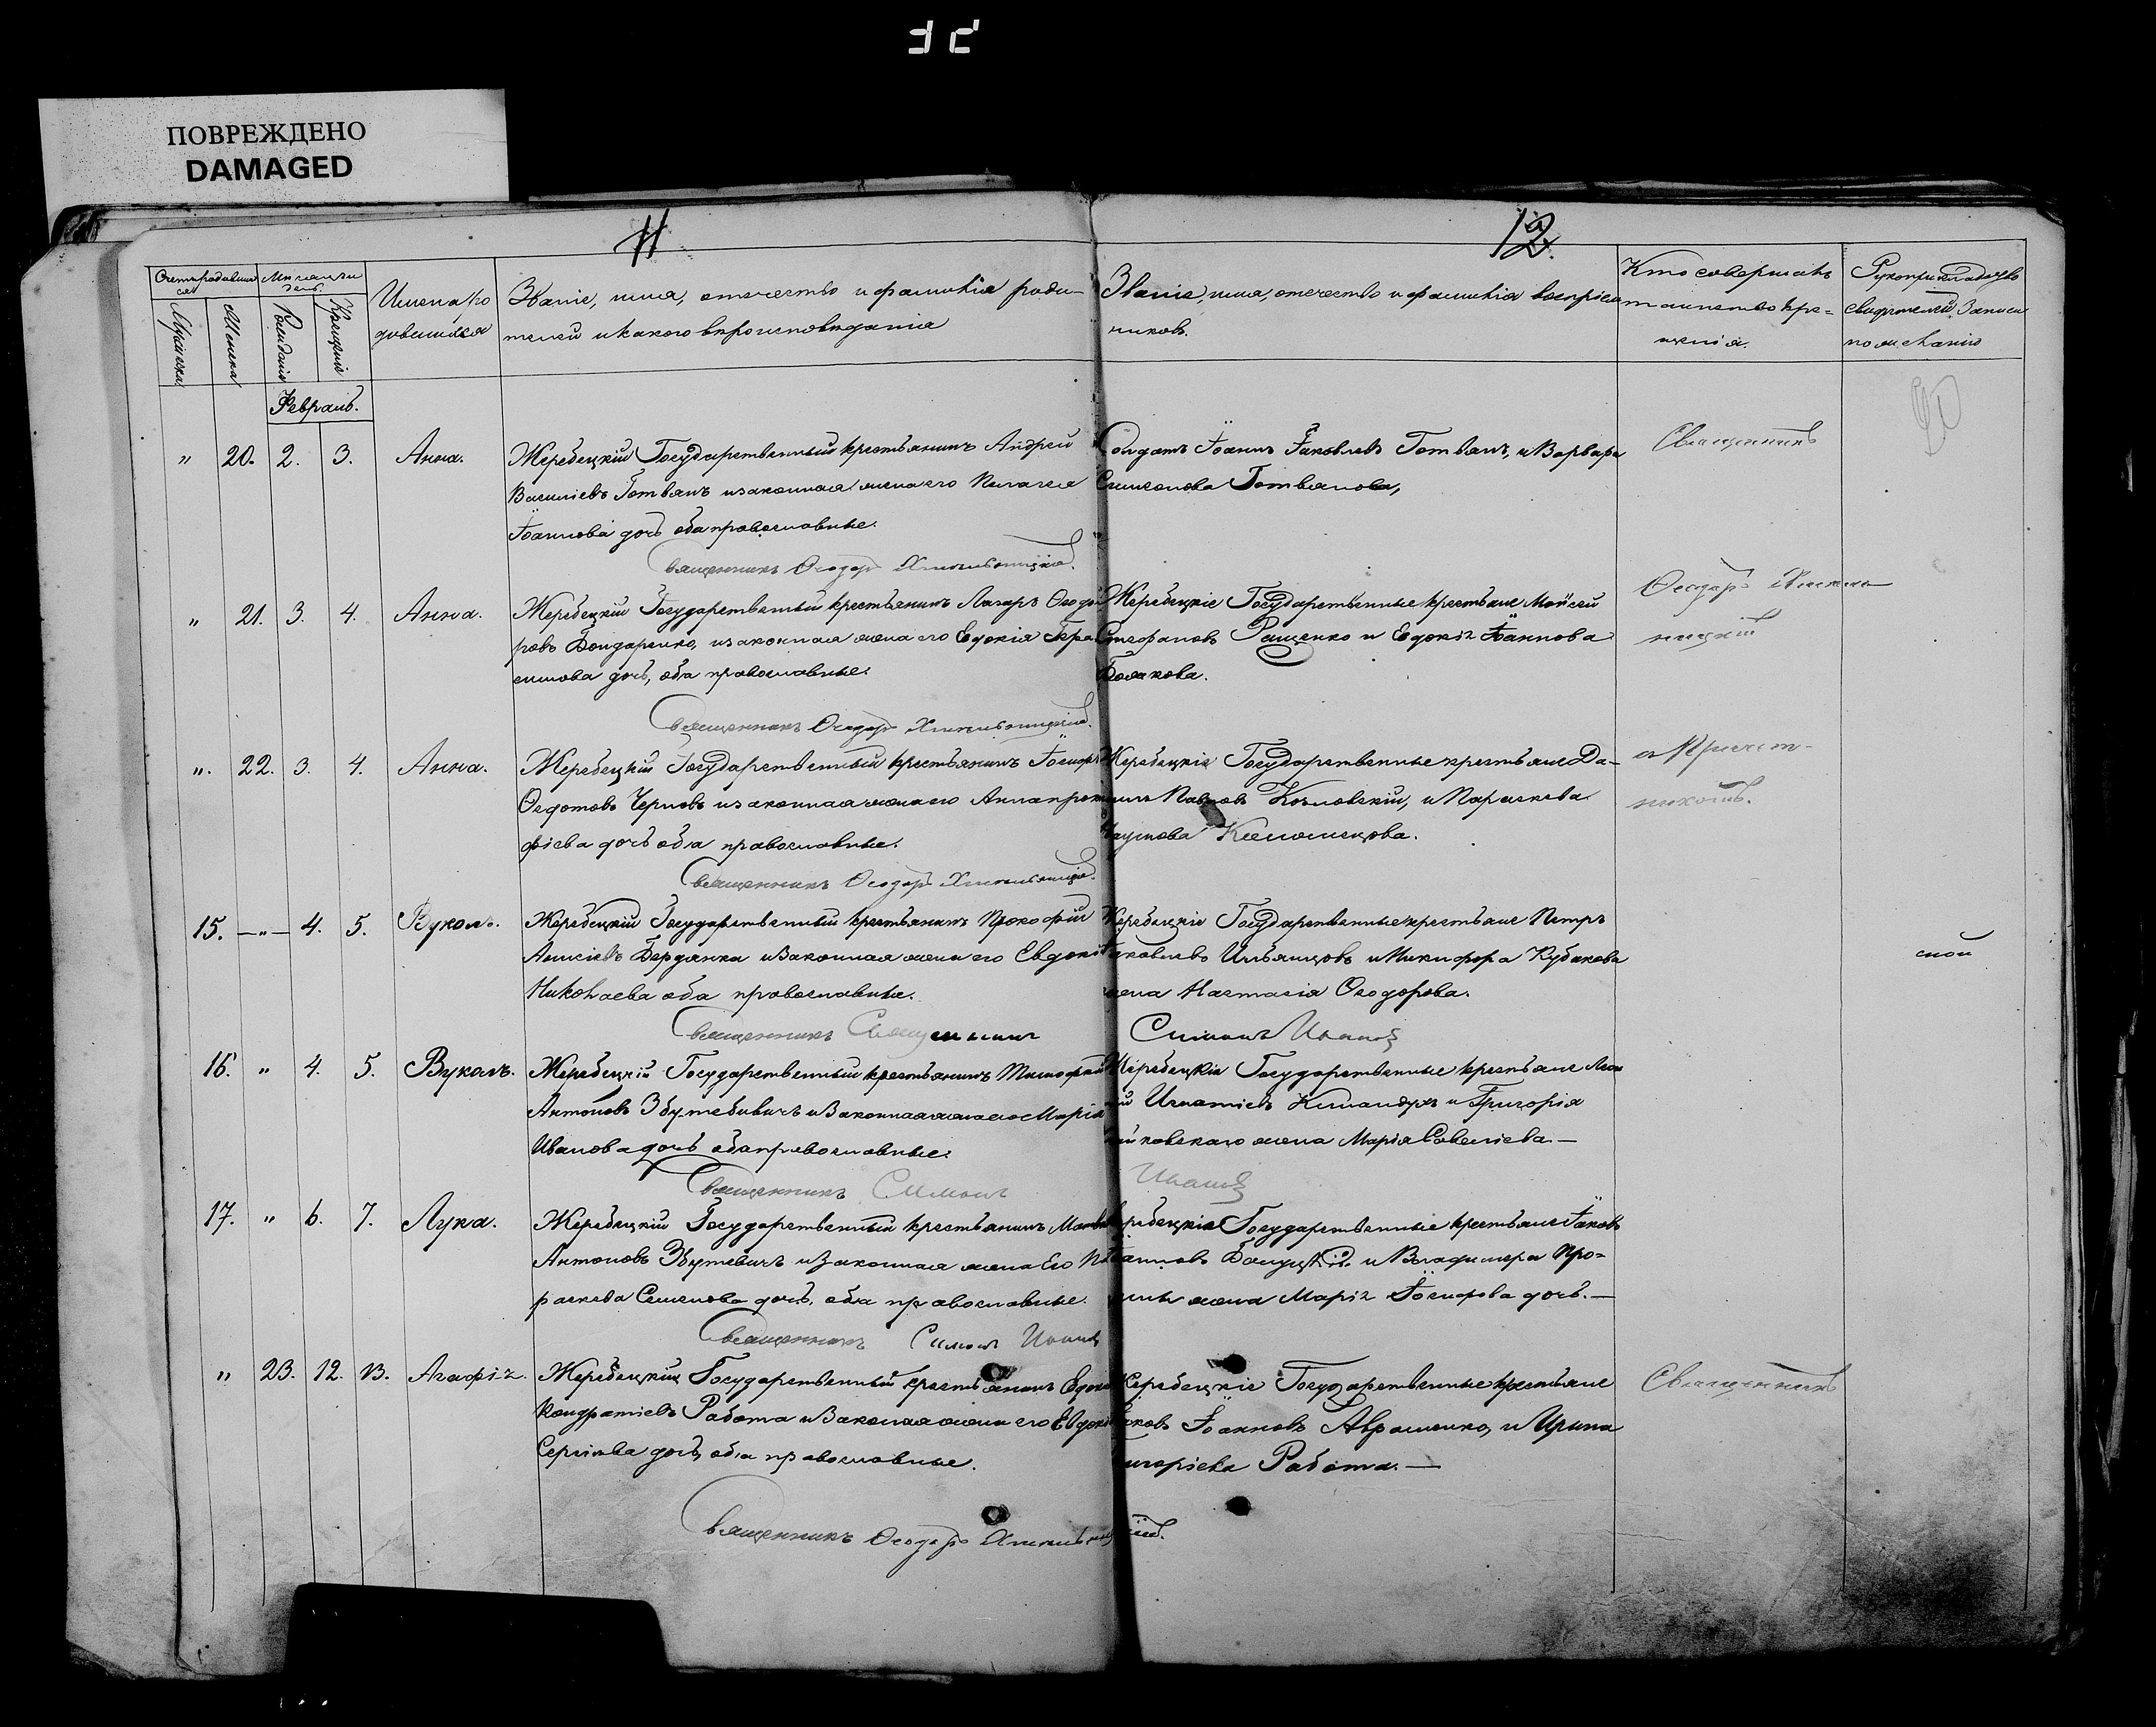 ПОВРЕЖДЕНО
DAMAGED
11
12.
Счетъ родившихся
Мѣсяцъ и день
Мужеска
Женска
Рожденія
Крещенія
Имена родившихся
Званіе, имя, отечество и фамилія роди-
телей и какого вѣроисповѣданія
Званіе, имя, отечество и фамилія воспріем
никовъ.
Кто совершалъ
таинство кре-
щенія.
Рукоприкладство
свидѣтелей записи
по желанію
Февраль.
" 20. 2. 3. Анна.
Жеребецкій Государственный крестьянинъ Андрей
Василіевъ Готвянъ и законная жена его Пелагея
Іоаннова дочь оба православные.
Священникъ Ѳеодоръ Хмельницкій.
Солдатъ Іоаннъ Іаковлевъ Готвянъ, и Варвара
Симеонова Готвянова,
Священникъ
" 21. 3. 4. Анна.
Жеребецкій Государственный крестьянинъ Лазарь Ѳеодо
ровъ Бондаренко, и законная жена его Евдокія Гера
симова дочь, оба православные.
Священникъ Ѳеодоръ Хмельницкій.
Жеребецкіе Государственные крестьяне Моисей
Стефановъ Ращенко и Евдокія Іоаннова
Ѳеодоръ Хмель
ницкій
". 22. 3. 4. Анна.
Жеребецкій Государственный крестьянинъ Іосифъ
Ѳедотовъ Черновъ и законная жена его Анна Прок
фіева дочь оба православные.
Священникъ Ѳеодоръ Хмельницкій.
Жеребецкіе Государственные крестьяне Да-
Павловъ Козловскій, и Параскева
Наумова
съ Причет-
никомъ.
15. —"— 4. 5. Вуколъ.
Жеребецкій Государственный крестьянинъ Прокофій
Анисіевъ Бердянка и законная жена его Евдокія
Николаева оба православные.
Священникъ Священникъ
Жеребецкіе Государственные крестьяне Петръ
Іаковлевъ Ильяшовъ и Никифора Кубакова
жена Настасія Ѳеодорова.
Симонъ Ивановъ
ской
16. " 4. 5. Вуколъ.
Жеребецкій Государственный крестьянинъ Тимофей
Антоновъ Збутевичъ и законная жена его Марія
Иванова дочь оба православные.
Священникъ Симонъ
Жеребецкіе Государственные крестьяне
Игнатіевъ и Григорія
жена Марія Савеліева.—
Ивановъ
17. " 6. 7. Лука.
Жеребецкій Государственный крестьянинъ Матвѣй
Антоновъ Збутевичъ и законная жена его Па
раскева Семенова дочь, оба православные.
Священникъ Симонъ Ивановъ
Жеребецкіе Государственные крестьяне Іаковъ
Іоанновъ и Владимера Про-
жена Марія Іосифова дочь.—
" 23. 12. 13. Агафія.
Жеребецкій Государственный крестьянинъ
Кондратіевъ Работа и законная жена его Евдокія
Сергіева дочь, оба православные.
Священникъ Ѳеодоръ Хмельницкій.
Жеребецкіе Государственные крестьяне
Іаковъ Іоанновъ Авраменко, и Ирина
Григоріева Работа.—
Священникъ